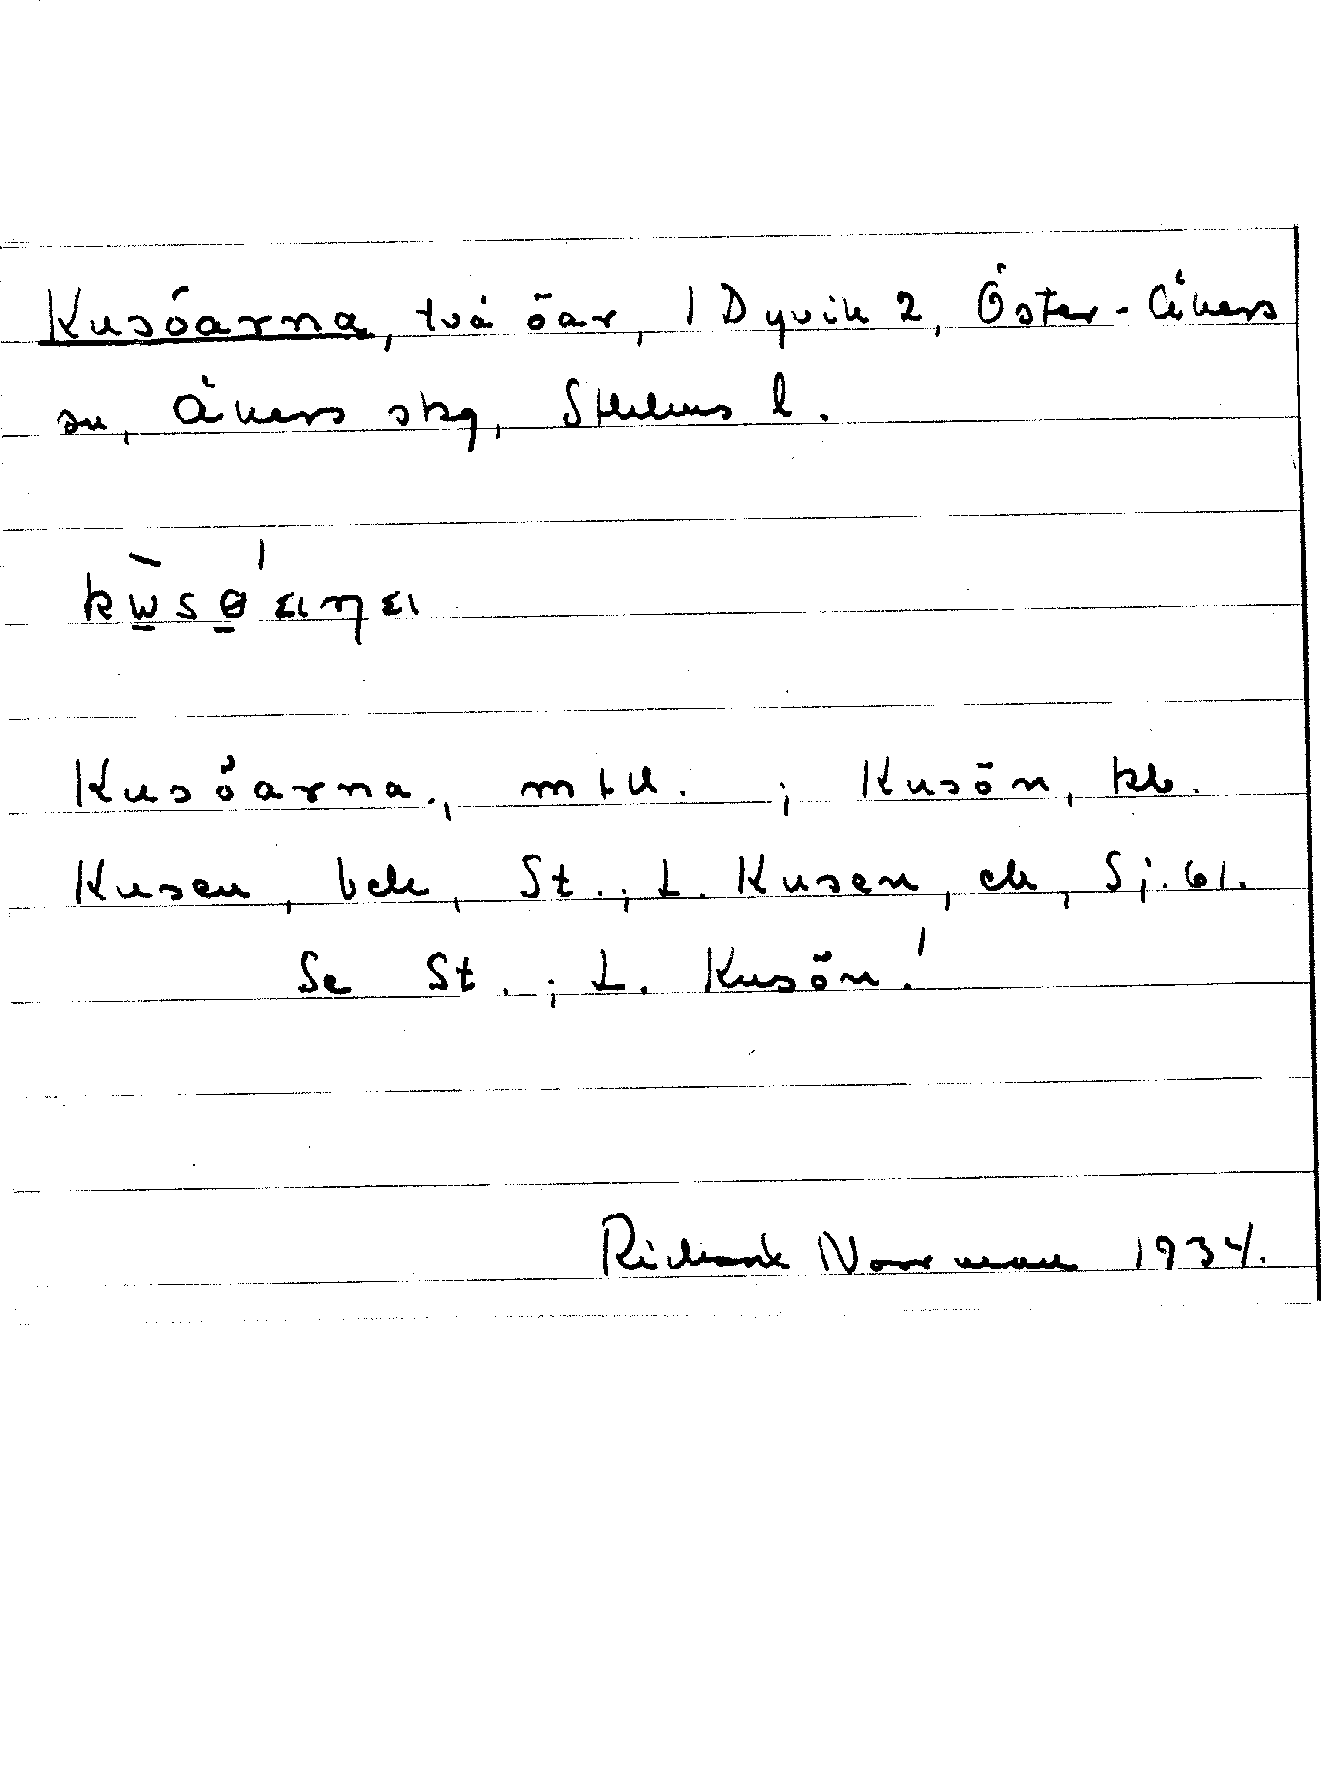 Kusöarna, två öar, 1 Dyvik 2, Öster-Åkers
sn, Åkers skg, Sthlms l.
Kusöarna, mtl. ; Kusön, kb.
Kusen, bek, St. ; L. Kusen, ek, Sj. 61.
Se St. ; L. Kusön!
Richard Norrman 1934.